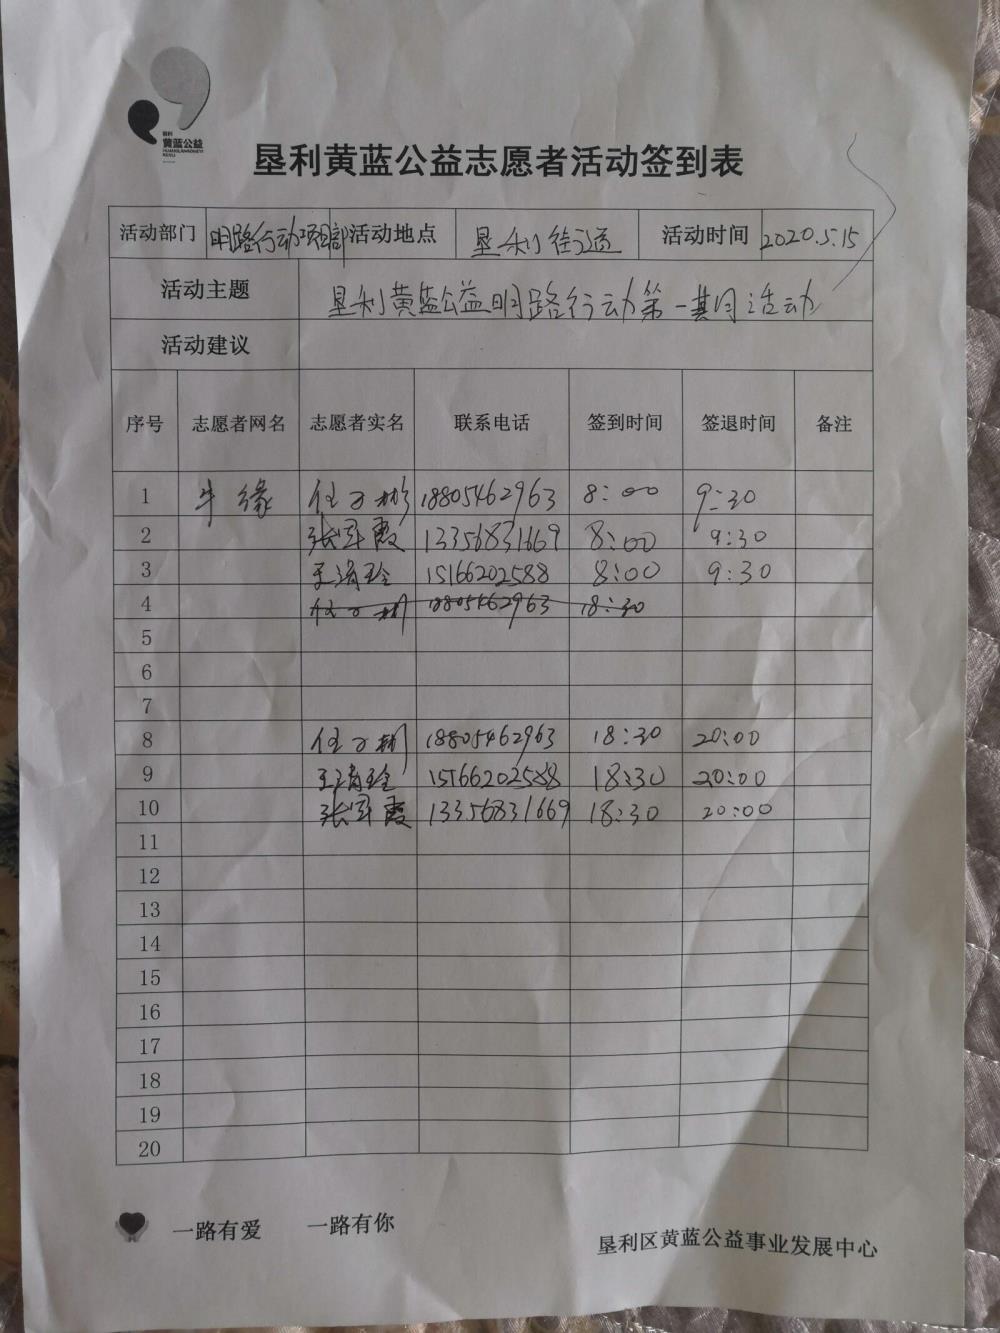 垦利
黄蓝公益
垦利黄蓝公益志愿者活动签到表
活动部门 明路行动项目部 活动地点 垦利街道 活动时间 2020.5.15
活动主题 垦利黄蓝公益明路行动第一期活动
活动建议
序号 志愿者网名 志愿者实名 联系电话 签到时间 签退时间 备注
1 牛缘 任 彬 18805462963 8:00 9:30
2 张军霞 13356831669 8:00 9:30
3 王清玲 15166202588 8:00 9:30
4 任 彬 18805462963 18:30
5
6
7
8 任 彬 18805462963 18:30 20:00
9 王清玲 15166202588 18:30 20:00
10 张军霞 13356831669 18:30 20:00
11
12
13
14
15
16
17
18
19
20
一路有爱 一路有你
垦利区黄蓝公益事业发展中心